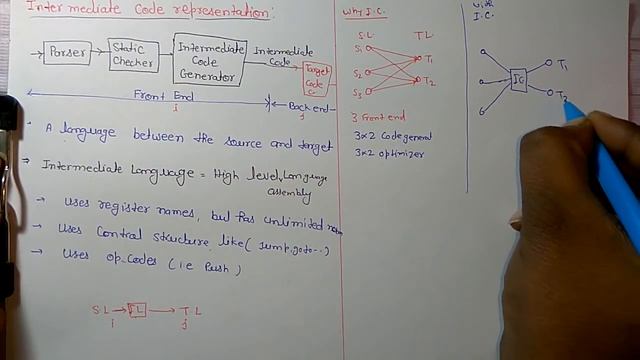 Intermediate Code representation:
Parser
Static
Checker
Intermediate
Code
Generator
Intermediate
Code
Target
Code
Front End
i
Back end
j
- A language between the source and target
⇒ Intermediate Language = High level Language
assembly
→ uses register names, but has unlimited
→ uses Control structure like (Jump, goto...)
→ uses op-codes (i.e Push)
S.L → IL → T.L
i j
Why I.C.
S.L T.L
S1
S2
S3
T1
T2
3 Front end
3x2 Code general
3x2 optimizer
I.C.
IC
T1
T2